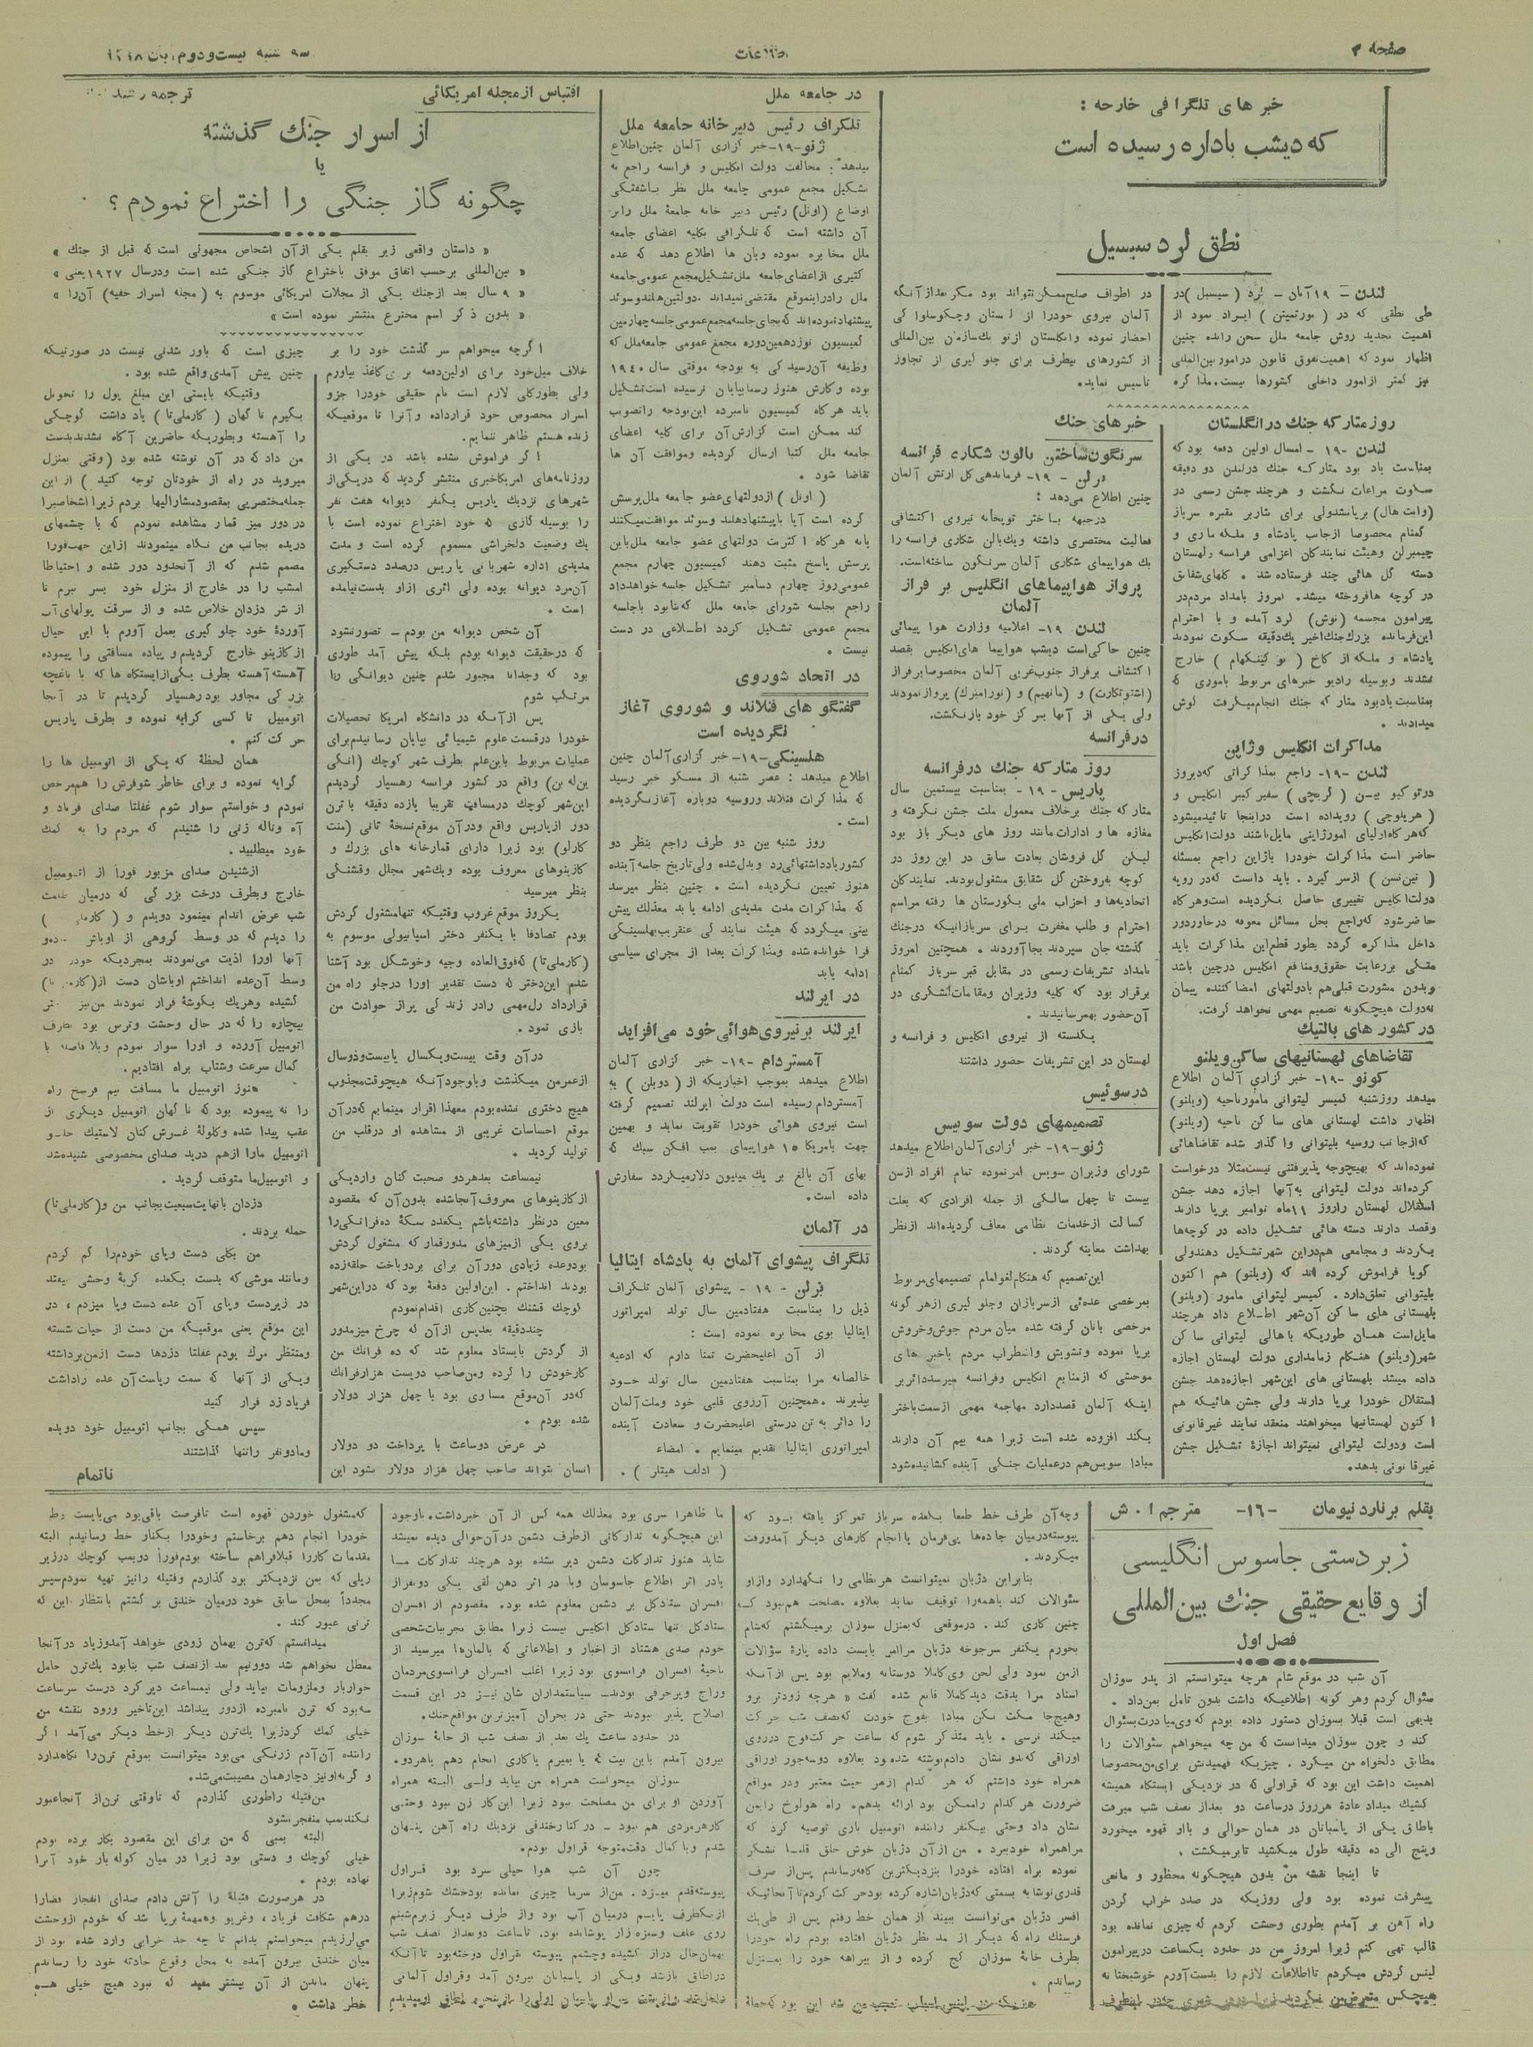 صفحه ۲
اطلاعات
سه شنبه بیست‌ودوم آبان ۱۳۱۸
خبر های تلگرافی خارجه :
که دیشب باداره رسیده است
نطق لرد سیسیل
لندن – ۱۹ آبان – لرد ( سیسیل ) در
طی نطقی که در ( بورتمیتن ) ایراد نمود از
اهمیت تجدید روش جامعه ملل سخن رانده چنین
اظهار نمود که اهمیت تفوق قانون در امور بین‌المللی
نیز کمتر از امور داخلی کشورها نیست. مذاکره
در اطراف صلح ممکن نتواند بود مگر بعد از آنکه
آلمان نیروی خودرا از لهستان وچکوسلواکی
احضار نموده وانگلستان از نو یک سازمان بین‌المللی
از کشورهای بیطرف برای جلو گیری از تجاوز
تاسیس نماید.
روز متارکه جنك در انگلستان
لندن -۱۹- امسال اولین دفعه بود که
بمناسبت یاد بود متارکه جنك در لندن دو دقیقه
سکوت مراعات نگشت و هر چند جشن رسمی در
(وایت هال) برپا نشد ولی برای نثار بر مقبره سرباز
گمنام مخصوصا از جانب پادشاه و ملکه ماری و
چیمبرلن وهیئت نمایندگان اعزامی فرانسه و لهستان
دسته گل هائی چند فرستاده شد . گلهای شقایق
در کوچه ها فروخته میشد. امروز بامداد مردم در
پیرامون مجسمه (فوش) گرد آمده و با احترام
این فرمانده بزرگ جنك اخیر یك دقیقه سکوت نمودند
پادشاه و ملکه از کاخ ( بوکینگهام ) خارج
نشدند وبوسیله رادیو خبرهای مربوط باموری که
بمناسبت یادبود متارکه جنك انجام میگرفت گوش
میدادند.
مذاکرات انگلیس وژاپن
لندن -۱۹- راجع بمذاکراتی که دیروز
در توکیو بین (کریجی) سفیر کبیر انگلیس و
که هرگاه اولیای امور ژاپنی مایل باشند دولت انگلیس
حاضر است مذاکرات خودرا با ژاپن راجع بمسئله
( تین تسن ) از سر گیرد . باید دانست که در رویه
دولت انگلیس تغییری حاصل نگردیده است وهرگاه
حاضر شود که راجع بحل مسائل معوقه در خاور دور
داخل مذاکره گردد بطور قطع این مذاکرات باید
متکی بر رعایت حقوق ومنافع انگلیس در چین باشد
وبدون مشورت قبلی هم با دولتهای امضا کننده پیمان
نه دولت هیچگونه تصمیم مهمی نخواهد گرفت.
در کشور های بالتیك
تقاضاهای لهستانیهای ساکن ویلنو
کونو -۱۹- خبر گزاری آلمان اطلاع
میدهد روزشنبه کمیسر لیتوانی مامور ناحیه (ویلنو)
اظهار داشت لهستانی های ساکن ناحیه (ویلنو)
که از جانب روسیه بلیتوانی واگذار شده تقاضاهائی
نموده‌اند که بهیچوجه پذیرفتنی نیست مثلا درخواست
کرده‌اند دولت لیتوانی به آنها اجازه دهد جشن
استقلال لهستان را روز ۱۱ ماه نوامبر برپا دارند
وقصد دارند دسته هائی تشکیل داده در کوچه‌ها
بگردند و مجامعی هم در این شهر تشکیل دهند ولی
گویا فراموش کرده اند که (ویلنو) هم اکنون
بلیتوانی تعلق دارد . کمیسر لیتوانی مامور (ویلنو)
بلهستانی های ساکن آن شهر اطلاع داد هرچند
مایل است همان طوریکه باهالی لیتوانی ساکن
شهر (ویلنو) هنگام زمامداری دولت لهستان اجازه
داده میشد بلهستانی های این شهر اجازه دهد جشن
استقلال خودرا برپا دارند ولی جشن هائیکه هم
اکنون لهستانیها میخواهند منعقد نمایند غیر قانونی
است ودولت لیتوانی نمیتواند اجازهٔ تشکیل جشن
غیر قانونی بدهد.
خبرهای جنك
سرنگون‌ساختن بالون شکاری فرانسه
برلن – ۱۹- فرماندهی کل ارتش آلمان
چنین اطلاع می‌دهد :
در جبهه باختر توپخانه نیروی اکتشافی
فعالیت مختصری داشته ویک بالن شکاری فرانسه را
یك هواپیمای شکاری آلمان سرنگون ساخته است.
پرواز هواپیماهای انگلیس بر فراز
آلمان
لندن ۱۹- اعلامیه وزارت هوا پیمائی
چنین حاکی است دیشب هواپیما های انگلیس بقصد
اکتشاف بر فراز جنوب غربی آلمان مخصوصا بر فراز
(اشتوتکارت) و (مانهیم) و (نورامبرك) پرواز نمودند
ولی یکی از آنها بمرکز خود باز نگشت.
در فرانسه
روز متارکه جنك در فرانسه
پاریس – ۱۹ – بمناسبت بیستمین سال
متارکه جنك برخلاف معمول ملت جشن نگرفته و
مغازه ها و ادارات مانند روز های دیگر باز بود
لیکن گل فروشان بعادت سابق در این روز در
کوچه بفروختن گل شقایق مشغول بودند. نمایندگان
اتحادیه‌ها و احزاب ملی بگورستان ها رفته مراسم
احترام و طلب مغفرت برای سربازانیکه در جنك
گذشته جان سپردند بجا آوردند . همچنین امروز
بامداد تشریفات رسمی در مقابل قبر سرباز گمنام
برقرار بود که کلیه وزیران ومقامات لشگری در
آن حضور بهمرسانیدند .
یکدسته از نیروی انگلیس و فرانسه و
لهستان در این تشریفات حضور داشتند
در سوئیس
تصمیمهای دولت سویس
ژنو -۱۹- خبر گزاری آلمان اطلاع میدهد
شورای وزیران سویس امر نموده تمام افراد از سن
بیست تا چهل سالگی از جمله افرادی که بعلت
کسالت از خدمات نظامی معاف گردیده‌اند از نظر
بهداشت معاینه گردند .
این تصمیم که هنگام لغو تمام تصمیمهای مربوط
بمرخصی عده‌ئی از سربازان وجلو گیری از هر گونه
مرخصی بآنان گرفته شده میان مردم جوش وخروش
برپا نموده وتشویش واضطراب مردم با خبر های
موحشی که از منابع انگلیس وفرانسه میرسد دائر بر
اینکه آلمان قصد دارد مهاجمه مهمی از سمت باختر
بکند افزوده شده است زیرا همه بیم آن دارند
مبادا سویس هم در عملیات جنگی آینده کشانیده شود
در جامعه ملل
تلگراف رئیس دبیرخانه جامعه ملل
ژنو -۱۹- خبر گزاری آلمان چنین اطلاع
میدهد : مخالفت دولت انگلیس و فرانسه راجع به
تشکیل مجمع عمومی جامعه ملل نظر بآشفتگی
اوضاع (اونل) رئیس دبیر خانه جامعه ملل را بر
آن داشته است که تلگرافی بکلیه اعضای جامعه
ملل مخابره نموده وبآن ها اطلاع دهد که عده
کثیری از اعضای جامعه ملل تشکیل مجمع عمومی جامعه
ملل را در اینموقع مقتضی نمیدانند .دولتین هلند وسوئد
پیشنهاد نموده‌اند که بجای جلسه مجمع عمومی جلسه چهارمین
کمیسیون نوزدهمین دوره مجمع عمومی جامعه ملل که
وظیفه آن رسیدگی به بودجه موقتی سال ۱۹۴۰
بوده وکارش هنوز رسما بپایان نرسیده است تشکیل
یابد هرگاه کمیسیون نامبرده این بودجه را تصویب
کند ممکن است گزارش آن برای کلیه اعضای
جامعه ملل کتبا ارسال گردیده وموافقت آن ها
تقاضا شود .
( اونل ) از دولتهای عضو جامعه ملل پرسش
کرده است آیا با پیشنهاد هلند وسوئد موافقت میکنند
یا نه هرگاه اکثریت دولتهای عضو جامعه ملل باین
پرسش پاسخ مثبت دهند کمیسیون چهارم مجمع
عمومی روز چهارم دسامبر تشکیل جلسه خواهد داد
راجع بجلسه شورای جامعه ملل که بنا بود با جلسه
مجمع عمومی تشکیل گردد اطلاعی در دست
نیست .
در اتحاد شوروی
گفتگو های فنلاند و شوروی آغاز
نگردیده است
هلسینکی -۱۹- خبر گزاری آلمان چنین
اطلاع میدهد : عصر شنبه از مسکو خبر رسید
که مذاکرات فنلاند وروسیه دوباره آغاز نگردیده
است .
روز شنبه بین دو طرف راجع بنظر دو
کشور یادداشتهائی رد وبدل شده ولی تاریخ جلسه آینده
هنوز تعیین نگردیده است . چنین بنظر میرسد
که مذاکرات مدت مدیدی ادامه یابد معذلك پیش
بینی میگردد که هیئت نمایندگی عنقریب بهلسینکی
فرا خوانده شده ومذاکرات بعدا از مجرای سیاسی
ادامه یابد
در ایرلند
ایرلند بر نیروی هوائی خود می‌افزاید
آمستردام -۱۹- خبر گزاری آلمان
اطلاع میدهد بموجب اخباریکه از ( دوبلن ) به
آمستردام رسیده است دولت ایرلند تصمیم گرفته
است نیروی هوائی خودرا تقویت نماید و بهمین
جهت بامریکا ۱۵ هواپیمای بمب افکن سبك که
بهای آن بالغ بر یك میلیون دلار میگردد سفارش
داده است.
در آلمان
تلگراف پیشوای آلمان به پادشاه ایتالیا
برلن – ۱۹ – پیشوای آلمان تلگراف
ذیل را بمناسبت هفتادمین سال تولد امپراتور
ایتالیا بوی مخابره نموده است :
از آن اعلیحضرت تمنا دارم که ادعیه
خالصانه مرا بمناسبت هفتادمین سال تولد خود
بپذیرند .همچنین آرزوی قلبی خود وملت آلمان
را دائر به تن درستی اعلیحضرت و سعادت آینده
امپراتوری ایتالیا تقدیم مینمایم . امضاء
( ادلف هیتلر ) .
اقتباس از مجله امریکائی
ترجمه
از اسرار جنك گذشته
یا
چگونه گاز جنگی را اختراع نمودم ؟
« داستان واقعی زیر بقلم یکی از آن اشخاص مجهولی است که قبل از جنك »
« بین‌المللی بر حسب اتفاق موفق باختراع گاز جنگی شده است ودر سال ۱۹۲۷ یعنی »
« ۹ سال بعد از جنك یکی از مجلات امریکائی موسوم به (مجله اسرار خفیه) آن را »
« بدون ذکر اسم مخترع منتشر نموده است »
اگرچه میخواهم سر گذشت خود را بر
خلاف میل خود برای اولین دفعه بر روی کاغذ بیاورم
ولی بطور کلی لازم است نام حقیقی خودرا جزو
اسرار مخصوص خود قرار داده و آنرا تا موقعیکه
زنده هستم ظاهر ننمایم.
اگر فراموش نشده باشد در یکی از
روزنامه‌های امریکا خبری منتشر گردید که در یکی از
شهرهای نزدیك پاریس یکنفر دیوانه هفت نفر
را بوسیله گازی که خود اختراع نموده است با
یك وضعیت دلخراشی مسموم کرده است و مدت
مدیدی اداره شهربانی پاریس در صدد دستگیری
آن مرد دیوانه بوده ولی اثری از او بدست نیامده
است .
آن شخص دیوانه من بودم – تصور نشود
که در حقیقت دیوانه بودم بلکه پیش آمد طوری
بود که وجدانا مجبور شدم چنین دیوانگی را
مرتکب شوم
پس از آنکه در دانشگاه امریکا تحصیلات
خودرا در قسمت علوم شیمیائی بپایان رسانیدم برای
عملیات مربوط باین علم بطرف شهر کوچك (انگی
ین له بن) واقع در کشور فرانسه رهسپار گردیدم
این شهر کوچك در مسافت تقریبا یازده دقیقه با ترن
دور از پاریس واقع ودر آن موقع نسخهٔ ثانی (منت
کارلو) بود زیرا دارای قمارخانه های بزرك و
کازینوهای معروف بوده ویك شهر مجلل وقشنگی
بنظر میرسید
یکروز موقع غروب وقتیکه تنها مشغول گردش
بودم تصادفا با یکنفر دختر اسپانیولی موسوم به
(کارملی تا) که فوق‌العاده وجیه وخوشگل بود آشنا
شدم این دختر که دست تقدیر اورا در جلو راه من
قرار داد رل مهمی را در زندگی پر از حوادث من
بازی نمود .
در آن وقت بیست ویکسال یا بیست ودو سال
از عمر من میگذشت وبا وجود آنکه هیچوقت مجذوب
هیچ دختری نشده بودم معهذا اقرار مینمایم که در آن
موقع احساسات غریبی از مشاهده او در قلب من
تولید گردید .
نیمساعت بعد هر دو صحبت کنان وارد یکی
از کازینوهای معروف آنجا شده بدون آن که مقصود
معین در نظر داشته باشم یکعدد سکهٔ ده فرانکی را
بروی یکی از میزهای مدور قمار که مشغول گردش
بود وعده زیادی دور آن برای برد وباخت حلقه زده
بودند انداختم . این اولین دفعهٔ بود که در این شهر
کوچك قشنك بچنین کاری اقدام نمودم
چند دقیقه بعد پس از آن که چرخ میز مدور
از گردش باز ایستاد معلوم شد که ده فرانك من
کار خودش را کرده ومن صاحب دویست هزار فرانك
که در آن موقع مساوی بود با چهل هزار دولار
شده بودم .
در عرض دو ساعت با پرداخت دو دولار
انسان بتواند صاحب چهل هزار دولار بشود این
چیزی است که باور شدنی نیست در صورتیکه
چنین پیش آمدی واقع شده بود .
وقتیکه بایستی این مبلغ پول را تحویل
بگیرم ناگهان (کارملی تا) یادداشت کوچکی
را آهسته وبطوریکه حاضرین آگاه نشدند بدست
من داد که در آن نوشته شده بود (وقتی بمنزل
میروید در راه از خودتان توجه کنید ) از این
جمله مختصر پی بمقصود مشارالیها بردم زیرا اشخاصی را
در دور میز قمار مشاهده نمودم که با چشمهای
دریده بجانب من نگاه مینمودند از این جهت فورا
مصمم شدم که از آنحدود دور شده و احتیاطا
امشب را در خارج از منزل خود بسر ببرم تا
از شر دزدان خلاص شده و از سرقت پولهای باد
آوردهٔ خود جلو گیری بعمل آورم با این خیال
از کازینو خارج گردیدم و پیاده مسافتی را پیموده
آهسته آهسته بطرف یکی از ایستگاه ها که با باغچه
بزرگی مجاور بود رهسپار گردیدم تا در آنجا
اتومبیل تاکسی کرایه نموده و بطرف پاریس
حرکت کنم .
همان لحظهٔ که یکی از اتومبیل ها را
کرایه نموده و برای خاطر شوفرش را هم مرخص
نمودم و خواستم سوار شوم غفلتا صدای فریاد و
آه وناله زنی را شنیدم که مردم را به کمك
خود میطلبید .
از شنیدن صدای مزبور فورا از اتومبیل
خارج وبطرف درخت بزرگی که درمیان ظلمت
شب عرض اندام مینمود دویدم و ( کارملی تا )
را دیدم که در وسط گروهی از اوباش
آنها اورا اذیت می‌نمودند بمجردیکه خودرا در
وسط آن عده انداختم اوباشان دست از (کارملی تا)
کشیده وهریك بگوشهٔ فرار نمودند من نیز
بیچاره را که در حال وحشت وترس بود بطرف
اتومبیل آورده و اورا سوار نمودم وبلافاصله با
کمال سرعت وشتاب براه افتادیم.
هنوز اتومبیل ما مسافت نیم فرسخ راه
را نه پیموده بود که ناگهان اتومبیل دیگری از
عقب پیدا شده وگلولهٔ غرش کنان لاستیك جلو
اتومبیل مارا از هم درید صدای مخصوصی شنیده شد
و اتومبیل ما متوقف گردید .
دزدان با نهایت سبعیت بجانب من و (کارملی تا)
حمله بردند .
من بکلی دست وپای خودم را گم کردم
ومانند موشی که بدست یکعده گربهٔ وحشی بیفتد
در زیر دست وپای آن عده دست وپا میزدم ، در
این موقع یعنی موقعیکه من دست از حیات شسته
ومنتظر مرك بودم غفلتا دزدها دست از من برداشته
ویکی از آنها که سمت ریاست آن عده را داشت
فریاد زد فرار کنید
سپس همگی بجانب اتومبیل خود دویده
وما دو نفر را تنها گذاشتند
ناتمام
بقلم برنارد نیومان -۱۶- مترجم ا . ش
زبردستی جاسوس انگلیسی
از وقایع حقیقی جنك بین‌المللی
فصل اول
آن شب در موقع شام هرچه میتوانستم از پدر سوزان
سئوال کردم وهر گونه اطلاعیکه داشت بدون تامل بمن داد .
بدیهی است قبلا بسوزان دستور داده بودم که وی مبادرت بسئوال
کند و چون سوزان میدانست که من چه میخواهم سئوالات را
مطابق دلخواه من میکرد . چیزیکه فهمیدنش برای من مخصوصا
اهمیت داشت این بود که قراولی که در نزدیکی ایستگاه همیشه
کشیك میداد عادة هرروز در ساعت دو بعد از نصف شب میرفت
باطاق یکی از پاسبانان در همان حوالی و با او قهوه میخورد
وپنج الی ده دقیقه طول میکشید تا برمیگشت .
تا اینجا نقشه من بدون هیچگونه محظور و مانعی
پیشرفت نموده بود ولی روزیکه در صدد خراب کردن
راه آهن بر آمدم بطوری وحشت کردم که چیزی نمانده بود
قالب تهی کنم زیرا امروز من در حدود یکساعت در پیرامون
لینس گردش میکردم تا اطلاعات لازم را بدست آورم خوشبختانه
هیچکس متعرض من نگردید زیرا در هر شهری چه در اینطرف
وچه آن طرف خط طبعا یکعده سرباز تمرکز یافته بود که
پیوسته درمیان جاده‌ها پی فرمان یا انجام کارهای دیگر آمد ورفت
میکردند .
بنابر این دژبان نمیتوانست هر نظامی را نگهدارد واز او
سئوالات کند یا همه را توقیف نماید بعلاوه مصلحت هم نبود که
چنین کاری کند . در موقعی که بمنزل سوزان برمیگشتم که شام
بخورم یکنفر سرجوخه دژبان مرا امر بایست داده پارهٔ سئوالات
ازمن نمود ولی لحن وی کاملا دوستانه وملایم بود پس از آنکه
اسناد مرا بدقت دید کاملا قانع شده گفت « هرچه زودتر برو
وهیچ جا مکث نکن مبادا بفوج خودت که نصف شب حرکت
میکند نرسی . باید متذکر شوم که ساعت حرکت فوج در روی
اوراقی که باو نشان دادم نوشته شده بود بعلاوه دوسه جور اوراقی
همراه خود داشتم که هر کدام از هر حیث معتبر ودر مواقع
ضرورت هر کدام را ممکن بود ارائه بدهم. راه هولوخ را بمن
نشان داد وحتی بیکنفر راننده اتومبیل باری توصیه کرد که
مرا همراه خود ببرد . من از آن دژبان خوش خلق قلبا تشکر
نموده براه افتاده خودرا بنزدیکترین کافه رساندم پس از صرف
قدری نوشابه بسمتی که دژبان اشاره کرده بود حرکت کردم تا آنجائیکه
افسر دژبان می‌توانست ببیند از همان خط رفتم پس از طی یك
فرسنك راه که دیگر از مد نظر دژبان افتاده بودم راه خودرا
بطرف خانهٔ سوزان کج کرده و از بیراهه خود را بمنزل
رساندم .
ما ظاهرا سری بود معذلك همه کس از آن خبر داشت. با وجود
این هیچگونه تدارکاتی از طرف دشمن در آن حوالی دیده نمیشد
شاید هنوز تدارکات دشمن دیر نشده بود هر چند تدارکات ما
یا در اثر اطلاع جاسوسان ویا در اثر دهن لقی یکی دو نفر از
افسران ستاد کل بر دشمن معلوم شده بود. مقصودم از افسران
ستاد کل تنها ستاد کل انگلیس نیست زیرا مطابق تجربیات شخصی
خودم صدی هشتاد از اخبار و اطلاعاتی که بآلمان‌ها میرسید از
ناحیهٔ افسران فرانسوی بود زیرا اغلب افسران فرانسوی مردمان
وراج وپر حرفی بودند. سیاستمداران شان نیز در این قسمت
اصلاح پذیر نبودند حتی در بحران آمیز ترین مواقع جنك.
در حدود ساعت یك بعد از نصف شب از خانهٔ سوزان
بیرون آمدم باین نیت که یا بمیرم یا کاری انجام دهم یا هر دو.
سوزان میخواست همراه من بیاید ولی البته همراه
آوردن او برای من مصلحت نبود زیرا این کار زن نبود وحتی
کار هر مردی هم نبود – در کنار خندقی نزدیك راه آهن پنهان
شدم وبا کمال دقت متوجه قراول بودم.
چون آن شب هوا خیلی سرد بود قراول
پیوسته قدم میزد . من از سرما چیزی نمانده بود خشك شوم زیرا
از یکطرف پایم درمیان آب بود واز طرف دیگر زبرم شبنم
روی علف وسبزه زار پوشانده بود. تا ساعت دو بعد از نصف شب
بهمان حال دراز کشیده وچشمم پیوسته بقراول دوخته بود تا آنکه
در اطاق باز شد ویکی از پاسبانان بیرون آمد وقراول آلمانی
که مشغول خوردن قهوه است تا فرصت باقی بود می‌بایست
خودرا انجام دهم برخاستم وخودرا بکنار خط رسانیدم البته
مقدمات کار را قبلا فراهم ساخته بودم فورا دو بمب کوچك در زیر
ریلی که بمن نزدیکتر بود گذاردم وفتیله را نیز تهیه نمودم سپس
مجدداً بمحل سابق خود درمیان خندق بر گشتم بانتظار این که
ترنی عبور کند .
میدانستم که ترن بهمان زودی خواهد آمد وزیاد در آنجا
معطل نخواهم شد دو ونیم بعد از نصف شب بنا بود یك ترن حامل
خواربار وملزومات بیاید ولی نیمساعت دیر کرد درست سر ساعت
سه بود که ترن نامبرده از دور پیدا شد این تاخیر ورود بنقشه من
خیلی کمك کرد زیرا یك ترن دیگر از خط دیگر می‌آمد اگر
راننده آن آدم زرنگی می‌بود میتوانست بموقع ترن را نگاهدارد
و گرنه او نیز دچار همان مصیبت می‌شد.
من فتیله را طوری گذاردم که تا وقتی ترن از آنجا عبور
نکند بمب منفجر نشود
البته بمبی که من برای این مقصود بکار برده بودم
خیلی کوچك و دستی بود زیرا در میان کوله بار خود آنرا
نهاده بودم .
در هر صورت فتیلهٔ را آتش دادم صدای انفجار فضا را
در هم شکافت فریاد ، وغریو وهمهمهٔ برپا شد که خودم از وحشت
می‌لرزیدم میخواستم بدانم تا چه حد خرابی وارد شده بود از
میان خندق بیرون آمده به محل وقوع حادثه خود را رساندم
پنهان ماندن از آن بیشتر مفید که نبود هیچ خیلی هم
خطر داشت .